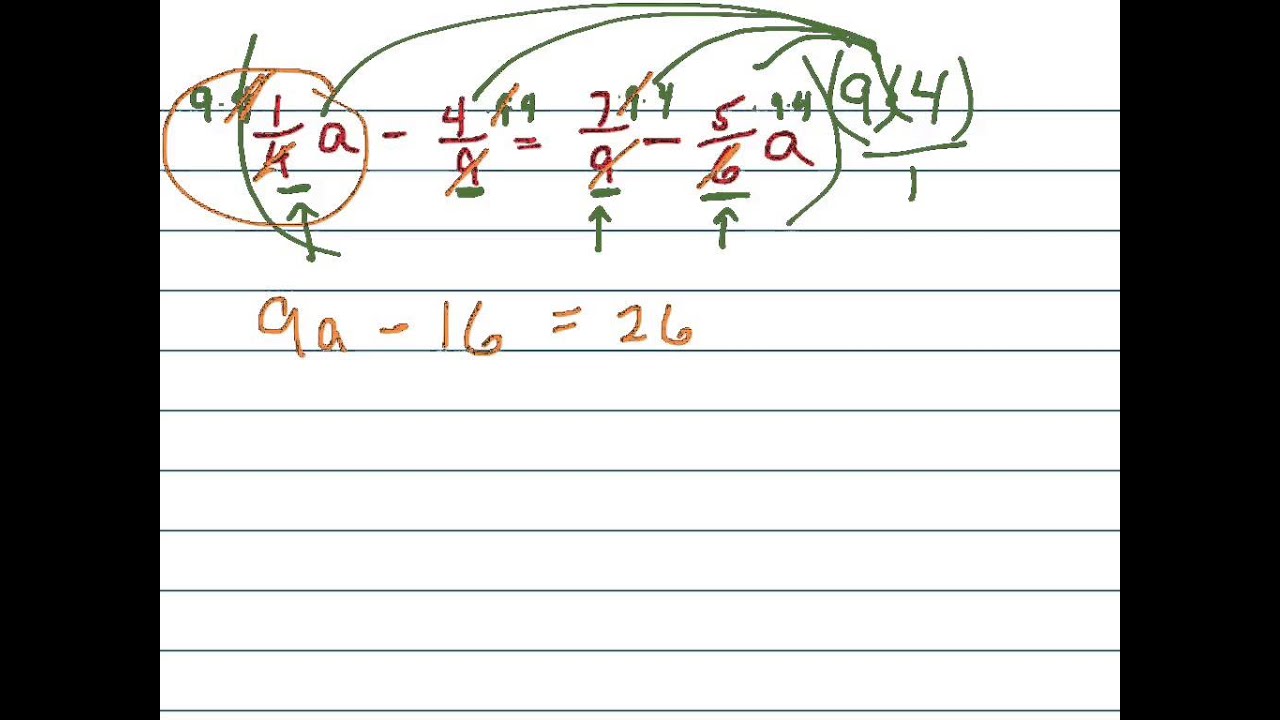 9·4 1/4 a - 4/9 ·4·9 = 7/9 ·9·4 - 5/6 a ·9·4 (9·4)/1
9a - 16 = 26